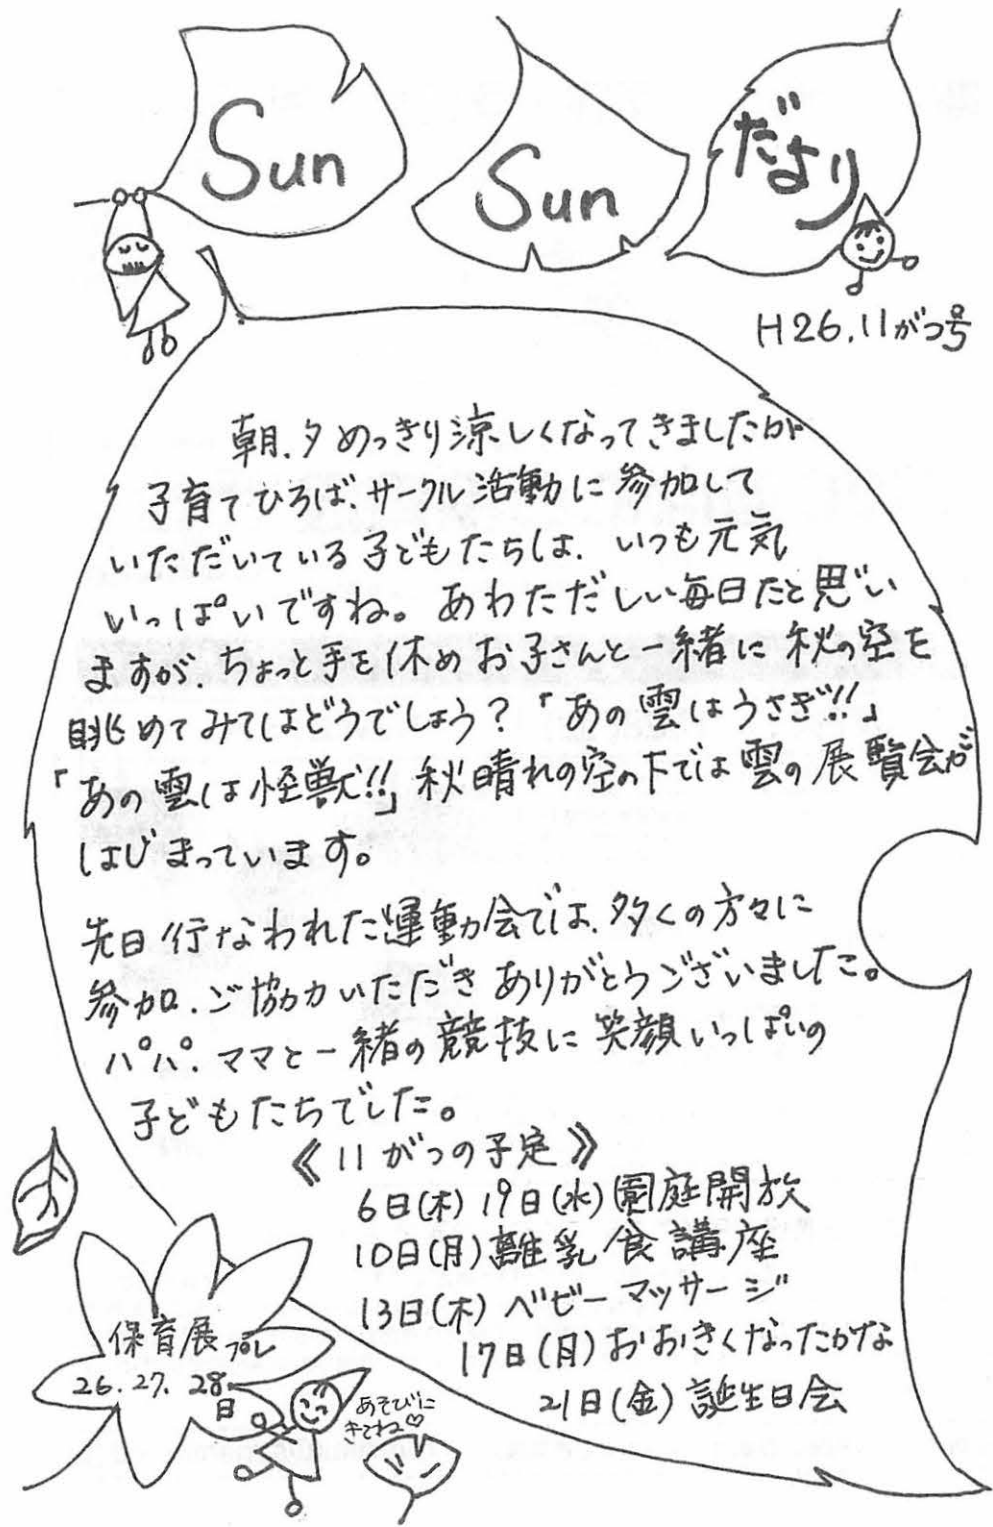 Sun Sun だより
H26.11がつ号
朝、夕めっきり涼しくなってきましたが
子育てひろば、サークル活動に参加して
いただいている子どもたちは、いつも元気
いっぱいですね。あわただしい毎日だと思い
ますが、ちょっと手を休めお子さんと一緒に秋の空を
眺めてみてはどうでしょう？「あの雲はうさぎ!!」
「あの雲は怪獣!!」秋晴れの空の下では雲の展覧会が
はじまっています。
先日行なわれた運動会では、多くの方々に
参加、ご協力いただきありがとうございました。
パパ、ママと一緒の競技に笑顔いっぱいの
子どもたちでした。
《11がつの予定》
6日(木) 19日(水)園庭開放
10日(月)離乳食講座
13日(木)ベビーマッサージ
17日(月)おおきくなったかな
21日(金)誕生日会
保育展プレ
26.27.28日
あそびに
きてね♡